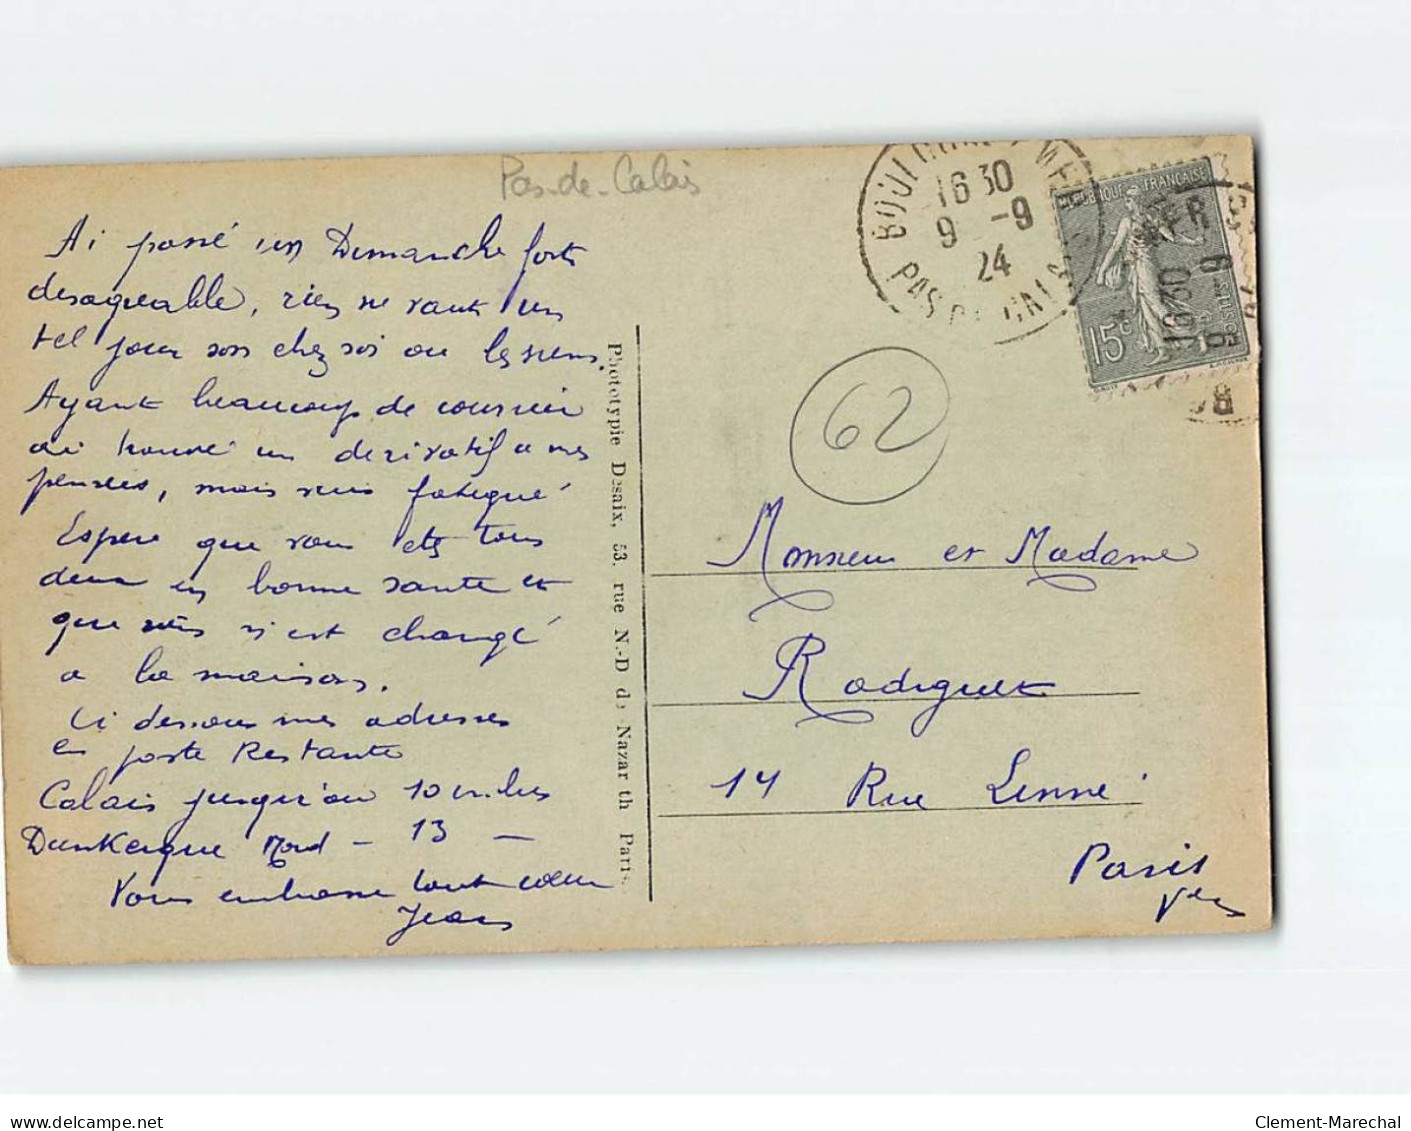 Pas-de-Calais
BOULOGNE S MER
16 30
9 -9
24
PAS DE CALAIS
REPUBLIQUE FRANÇAISE
15c
62
Ai passé un Dimanche fort
desagreable, rien ne vaut un
tel jour son chez soi ou les siens.
Ayant beaucoup de courrier
ai trouvé un derivatif a mes
pensées, mais suis fatigué
Espere que vous etes tous
deux en bonne sante et
que rien n'est changé
a la maison.
Ci dessous mes adresses
en poste Restante
Calais jusqu'au 10 inclus
Dunkerque Nord - 13 -
Vous embrasse tout coeur
Jean
Phototypie Desaix, 53, rue N.-D de Nazareth Paris.
Monsieur et Madame
Radiguet
14 Rue Linné
Paris
Vème
Clement-Marechal
www.delcampe.net